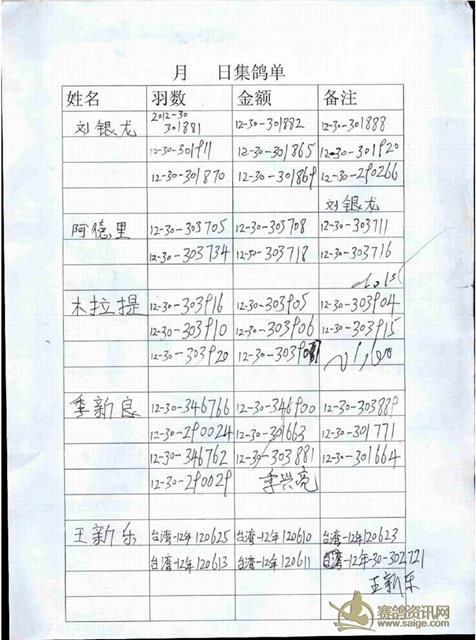 月 日集鸽单
姓名 羽数 金额 备注
刘银龙 2012-30 301881 12-30-301882 12-30-301888
12-30-301911 12-30-301865 12-30-301920
12-30-301870 12-30-301869 12-30-290266
刘银龙
阿德里 12-30-303705 12-30-303708 12-30-303711
12-30-303734 12-30-303718 12-30-303716
木拉提 12-30-303916 12-30-303905 12-30-303904
12-30-303910 12-30-303906 12-30-303915
12-30-303920
季新良 12-30-346766 12-30-346900 12-30-303889
12-30-290024 12-30-301663 12-30-301771
12-30-346762 12-30-303881 12-30-301664
12-30-290029 季兴亮
王新乐 台湾-12年120625 台湾-12年120610 台湾-12年120623
台湾-12年120613 台湾-12年120611 台湾-12年-30-302721
王新乐
赛鸽资讯网
www.saige.com